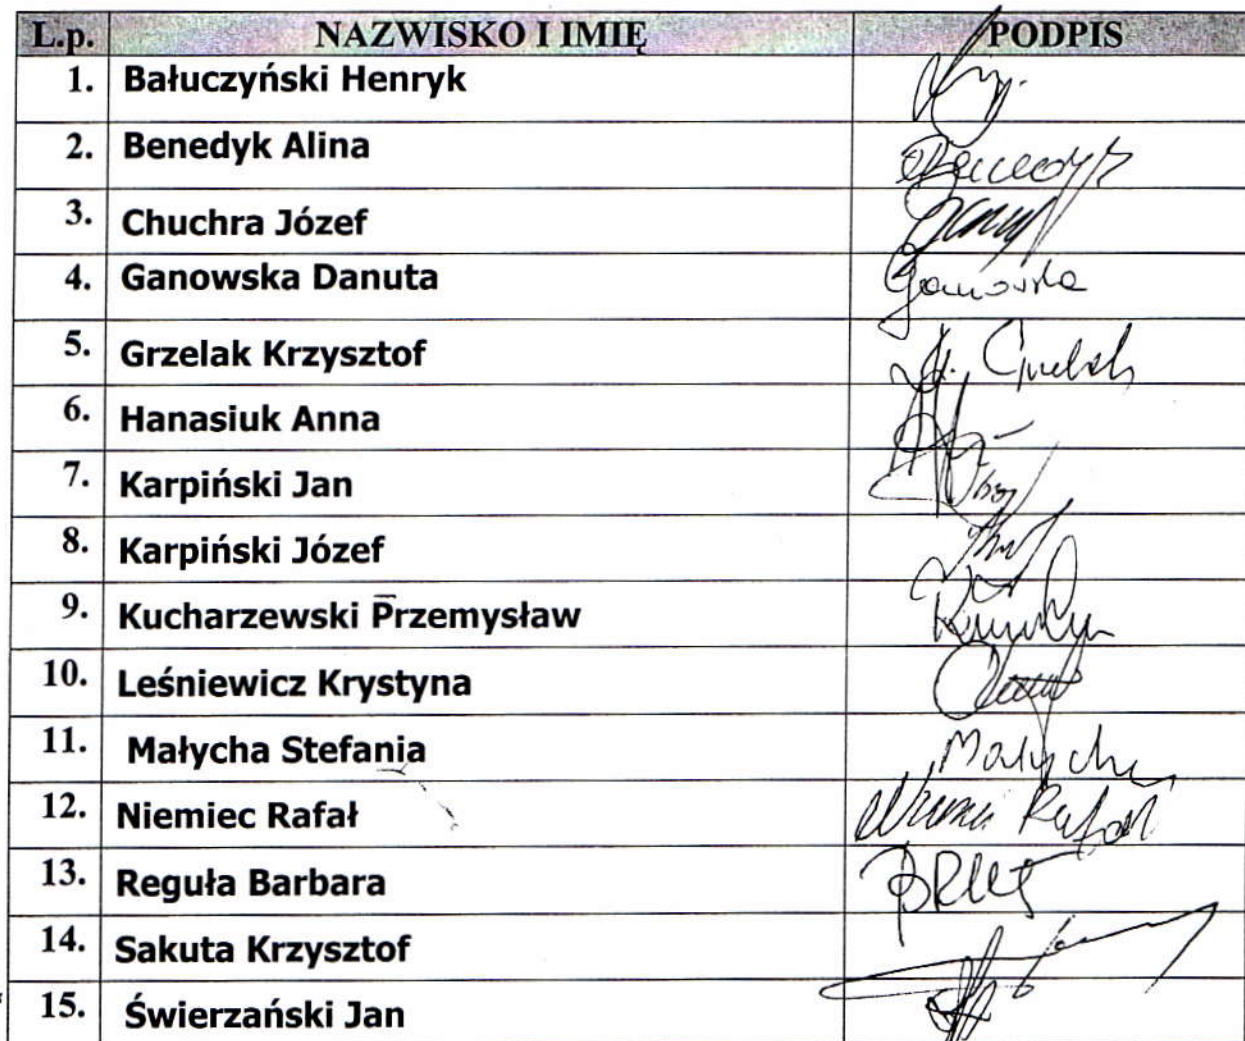 L.p. NAZWISKO I IMIĘ PODPIS
1. Bałuczyński Henryk
2. Benedyk Alina Benedyk
3. Chuchra Józef
4. Ganowska Danuta Ganowska
5. Grzelak Krzysztof
6. Hanasiuk Anna
7. Karpiński Jan
8. Karpiński Józef
9. Kucharzewski Przemysław
10. Leśniewicz Krystyna
11. Małycha Stefania Małycha
12. Niemiec Rafał Rafał
13. Reguła Barbara
14. Sakuta Krzysztof
15. Świerzański Jan